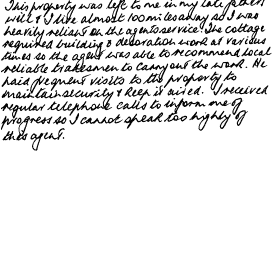 This property was left to me in my late father's
will & I live almost 100 miles away so I was
heavily reliant on the agents service. The cottage
required building & decoration work at various
times so the agent was able to recommend local
reliable tradesmen to carry out the work. He
paid frequent visits to the property to
maintain security & keep it aired. I received
regular telephone calls to inform me of
progress so I cannot speak too highly of
this agent.